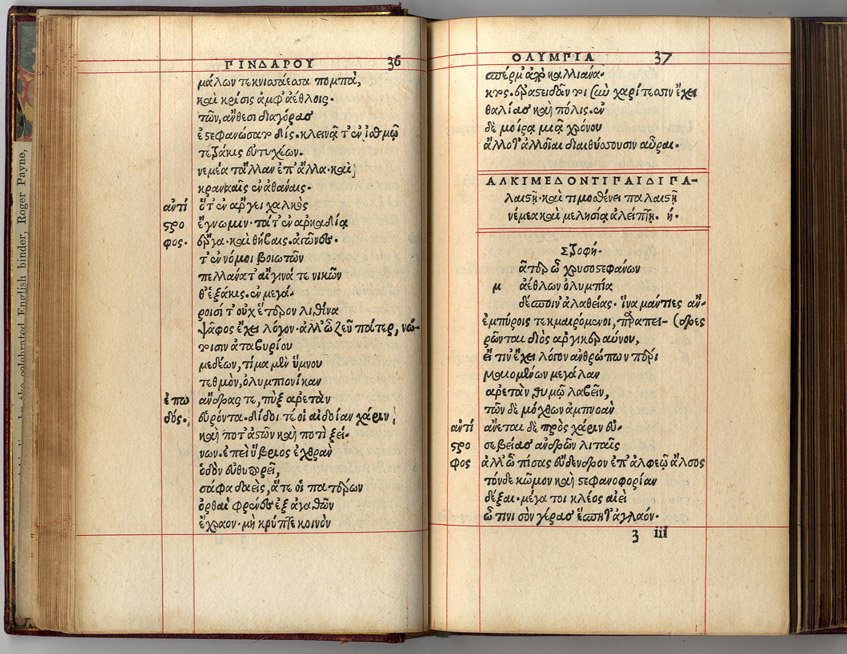 ΠΙΝΔΑΡΟΥ 36
μάλων τε κνισσάεσσα πομπὰ,
καὶ κρίσις ἀμφ᾽ ἀέθλοις.
τῶν, ἄνθεσι διαγόρας
ἐστεφανώσατο δὶς. κλεινᾷ τ᾽ ἐν ἰσθμῷ
τετράκις εὐτυχέων.
νεμέα τ᾽ ἄλλαν ἐπ᾽ ἄλλα. καὶ
κρανααῖς ἐν ἀθάναις.
ἀντὶ ὅτ᾽ ἐν ἄργει χαλκὸς
στρο ἔγνω μιν. τά τ᾽ ἐν ἀρκαδίᾳ
φος. ἔργα. καὶ θήβαις. ἀγῶνές
τ᾽ ἐν νόμοι βοιωτῶν
πελλάνα τ᾽ αἴγινά τε νικῶν
θ᾽ ἑξάκις. ἐν μεγά-
ροισί τ᾽ οὐχ ἕτερον λιθίνα
ψᾶφος ἔχει λόγον. ἀλλ᾽ ὦ ζεῦ πάτερ, νώ-
τοισιν ἀταβυρίου
μεδέων, τίμα μὲν ὕμνου
τεθμὸν, ὀλυμπιονίκαν
ἐπω ἄνδρας τε, πὺξ ἀρετὰν
δός. εὑρόντα. δίδοι τέ οἱ αἰδοίαν χάριν
καὶ ποτ᾽ ἀστῶν καὶ ποτὶ ξεί-
νων. ἐπεὶ ὕβριος ἐχθρὰν
ὁδὸν εὐθυπορεῖ,
σάφα δαεὶς, ἅτε οἱ πατέρων
ὀρθαὶ φρένες ἐξ ἀγαθῶν
ἔχραον. μὴ κρύπτε κοινὸν
ΟΛΥΜΠΙΑ 37
σπέρμ᾽ ἀπὸ καλλιάνα-
κτος. ἐρατειδῶν τοι σὺν χαρίτεσσιν ἔχει
θαλίας καὶ πόλις. ἐν
δὲ μοίρᾳ μιᾷ χρόνου
ἄλλοτ᾽ ἀλλοῖαι διαιθύσσουσιν αὖραι.
ΑΛΚΙΜΕΔΟΝΤΙ ΠΑΙΔΙ ΠΑ-
λαιστῇ. καὶ τιμοσθένει παλαιστῇ
νέμεα καὶ μελησίᾳ ἀλείπτῃ. ή.
Στροφή.
μ ᾶτερ ὦ χρυσοστεφάνων
ἀέθλων ὀλυμπία
δέσποιν᾽ ἀλαθείας. ἵνα μάντιες ἄν-
ἐμπύροις τεκμαιρόμενοι, πραπει- (δρες
ρῶνται διὸς ἀργικεραύνου,
εἴ τιν᾽ ἔχει λόγον ἀνθρώπων πέρι
μαιομένων μεγάλαν
ἀρετὰν θυμῷ λαβεῖν,
τῶν δὲ μόχθων ἀμπνοὰν
ἀντὶ ἄνεται δὲ πρὸς χάριν εὐ-
στρο σεβείας ἀνδρῶν λιταῖς
φος ἀλλ᾽ ὦ πίσας εὔδενδρον ἐπ᾽ ἀλφεῷ ἄλσος
τόνδε κῶμον καὶ στεφανοφορίαν
δέξαι. μέγα τοι κλέος αἰεὶ
ᾧ τινι σὸν γέρας ἕσπητ᾽ ἀγλαόν.
3 iii
the celebrated English binder, Roger Payne,